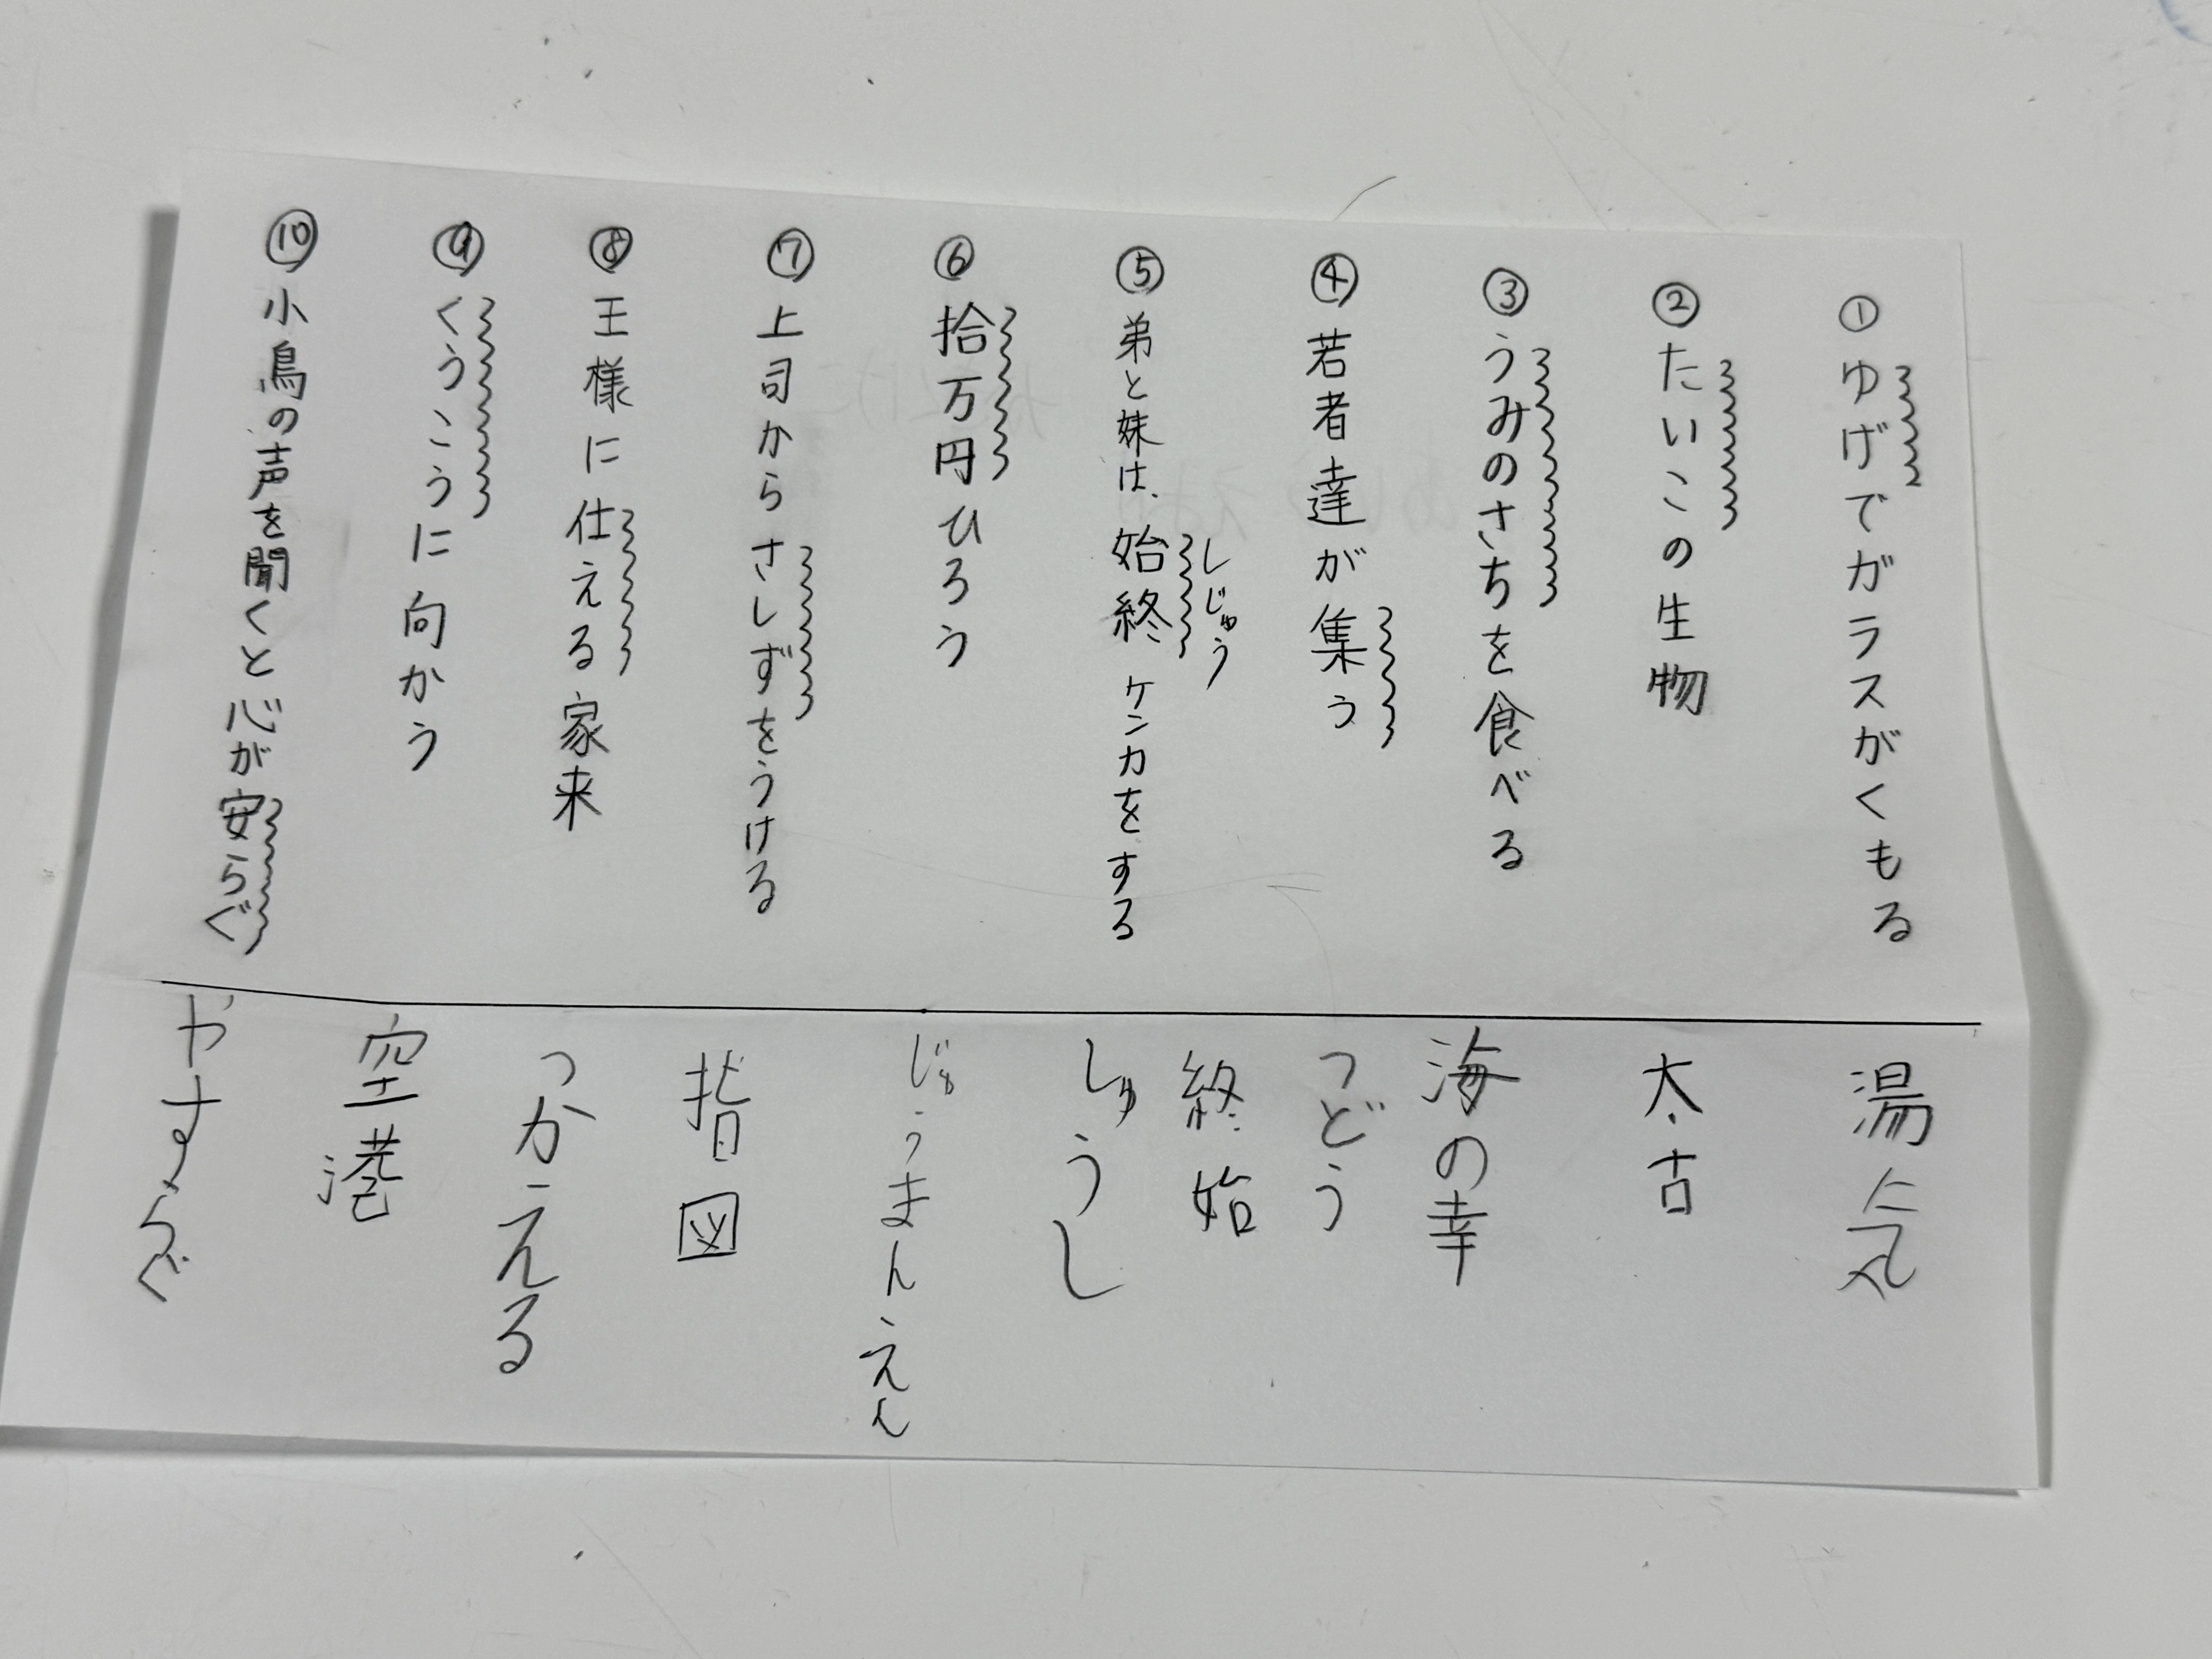 ①ゆげでガラスがくもる
②たいこの生物
③うみのさちを食べる
④若者達が集う
しじゅう
⑤弟と妹は、始終ケンカをする
⑥拾万円ひろう
⑦上司からさしずをうける
⑧王様に仕える家来
⑨くうこうに向かう
⑩小鳥の声を聞くと心が安らぐ
湯気
太古
海の幸
つどう
終始
しゅうし
じゅうまんえん
指図
つかえる
空港
やすらぐ